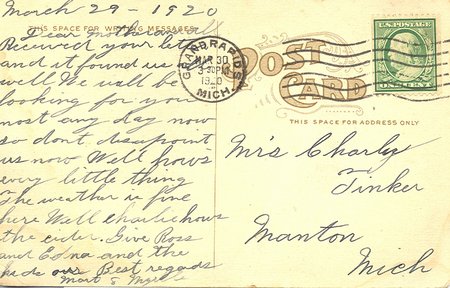 March 29 - 1920
THIS SPACE FOR WRITING MESSAGES
Dear mother and all
Received your letter
and it found us all
well We will be
looking for you
most any day now
so dont disapoint
us now Well hows
every little thing
The weather is fine
here Well charlie hows
the cider. Give Ross
and Edna and the
kids our Best regards
Mart & Myrtle
GRAND RAPIDS
MAR 30
3-30PM
MICH.
POST CARD
THIS SPACE FOR ADDRESS ONLY
U.S. POSTAGE
ONE CENT
Mrs Charly
Tinker
Manton
Mich